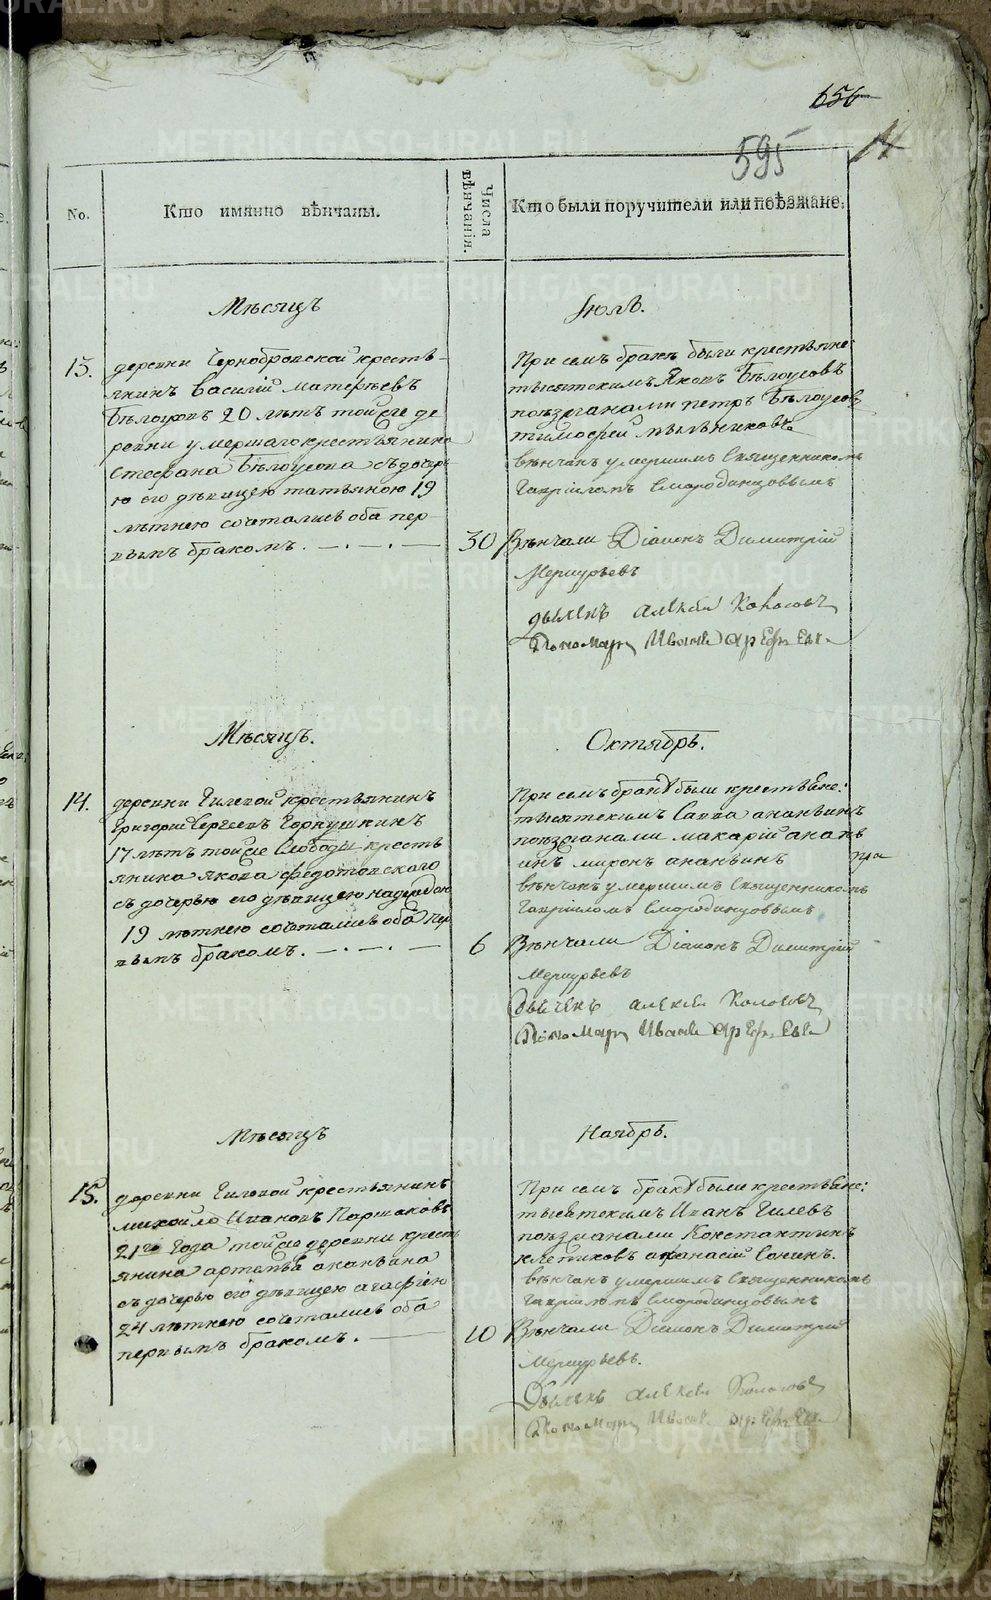 656
595
14
No.
Кто имянно вѣнчаны.
Числа вѣнчанія.
Кто были поручители или поѣзжане.
Мѣсяцъ
Іюль.
13.
деревни Чернобровской кресть-
янинъ Василій Матвѣевъ
Бѣлоусовъ 20 лѣтъ той же де
ревни умершаго крестьянина
Стефана Бѣлоусова съ дочерь
ю его дѣвицею Татьяною 19
лѣтнею сочетались оба пер-
вымъ бракомъ.
30
При семъ бракѣ были крестьяне:
тысятскимъ Яковъ Бѣлоусовъ
поѣзжанами Петръ Бѣлоусовъ
Тимофей
вѣнчанъ умершимъ Священникомъ
Гавріиломъ Смородинцовымъ
Вѣнчали Діаконъ Димитрій
Меркурьевъ
дьячекъ Алексей Колосовъ
Пономарь Иванъ Арефьевъ
Мѣсяцъ.
Октябрь.
14.
деревни Гилевой крестьянинъ
Григорий Сергеевъ Горкушкинъ
17 лѣтъ той же Слободы кресть
янина Якова Федотовского
съ дочерью его дѣвицею
19 лѣтнею сочетались оба пер
вымъ бракомъ.
6
При семъ бракѣ были крестьяне:
тысятскимъ Савва Ананьинъ
поѣзжанами Макарій Анань
инъ Миронъ Ананьинъ
вѣнчанъ умершимъ Священникомъ
Гавріиломъ Смородинцовымъ
Вѣнчали Діаконъ Димитрій
Меркурьевъ
дьячекъ Алексей Колосовъ
Пономарь Иванъ Арефьевъ
Мѣсяцъ
Ноябрь.
15.
деревни Гилевой крестьянинъ
Михайло Ивановъ Паршаковъ
21го года той же деревни кресть
янина Артемья Ананьина
съ дочерью его дѣвицею Агафією
24 лѣтнею сочетались оба
первымъ бракомъ.
10
При семъ бракѣ были крестьяне:
тысятскимъ Иванъ Гилевъ
поѣзжанами Константинъ
Клепиковъ Афанасій Сонинъ.
вѣнчанъ умершимъ Священникомъ
Гавріиломъ Смородинцовымъ
Вѣнчали Діаконъ Димитрій
Меркурьевъ.
Дьячекъ Алексей Колосовъ
Пономарь Иванъ Арефьевъ
METRIKI.GASO-URAL.RU